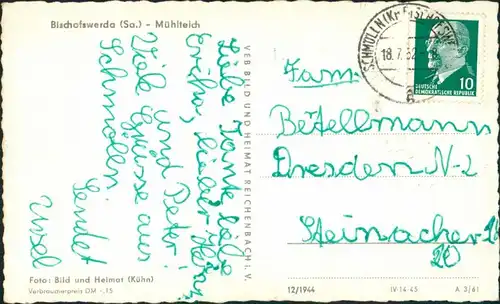 Bischofswerda (Sa.) - Mühlteich
Liebe Tante
Ericha, lieber
und Peter!
Viele Grüsse aus
Schmölln
Sendet
Ursel
Foto: Bild und Heimat (Kühn)
Verbraucherpreis DM -,15
VEB BILD UND HEIMAT REICHENBACH I. V.
SCHMÖLLN (Kr.
18.7.62
a
DEUTSCHE
DEMOKRATISCHE REPUBLIK
10
Fam.
Betellmann
Dresden N-2
Steinacher
20
12/1944
IV-14-45
A 3/61